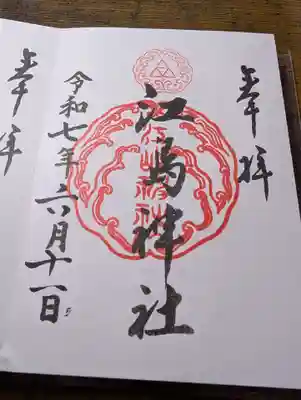 奉拝
江島神社
江島神社
令和七年六月十一日
奉拝